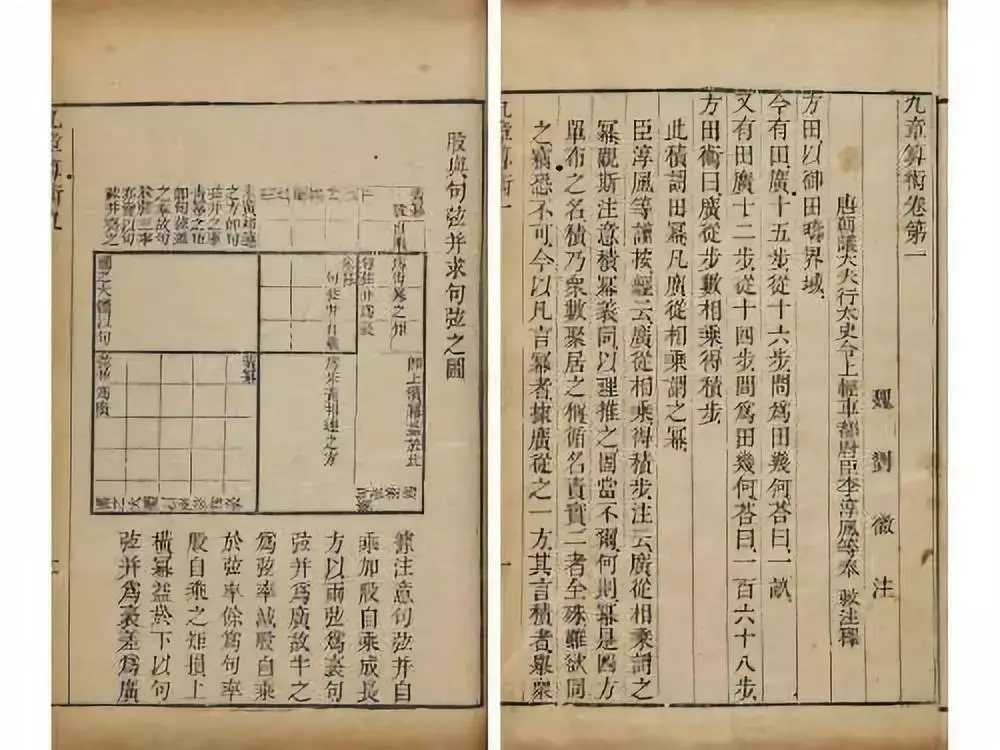 九章算術卷第一
魏劉徽注
唐朝議大夫行太史令上輕車都尉臣李淳風等奉 敕注釋
方田以御田疇界域
今有田廣十五步從十六步問爲田幾何荅曰一畝
又有田廣十二步從十四步問爲田幾何荅曰一百六十八步
方田術曰廣從步數相乘得積步
此積謂田冪凡廣從相乘謂之冪
臣淳風等謹按經云廣從相乘得積步注云廣從相乘謂之
冪觀斯注意積冪義同以理推之固當不爾何則冪是四方
單布之名積乃衆數聚居之稱循名責實二者全殊雖欲同
之竊恐不可今以凡言冪者據廣從之一方其言積者舉衆
九章算術一
一
股與句弦并求句弦之圖
據注意句弦并自
乘加股自乘成長
方以兩弦爲袤句
弦并爲廣故半之
爲弦率減股自乘
於弦率餘爲句率
股自乘之矩損上
橫冪益於下以句
弦并爲袤差爲廣
九章算術九